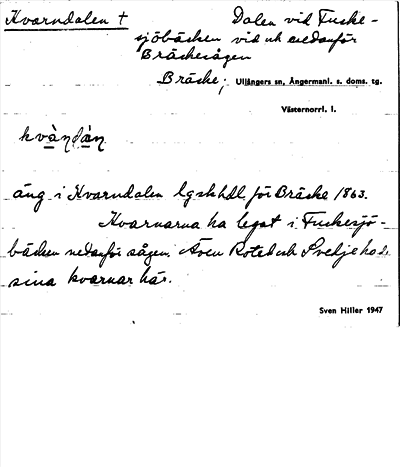 Kvarndalen †
Dalen vid Fuske-
sjöbäcken vid och nedanför
Bräckesågen
Bräcke; Ullångers sn, Ångermanl. s. doms. tg.
Västernorrl. l.
kvà̱ndà̱n
äng i Kvarndalen lgskhdl. för Bräcke 1863.
Kvarnarna ha legat i Fuskesjö-
bäcken nedanför sågen. Även Roted och Svedje hade
sina kvarnar här.
Sven Hiller 1947